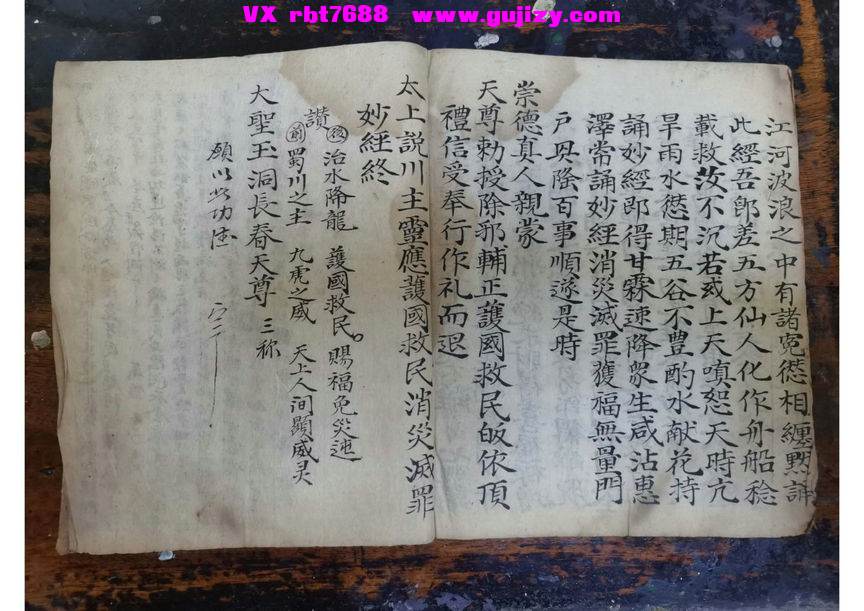 VX rbt7688 www.gujizy.com
江河波浪之中有諸寃愆相纏黙誦
此經吾郎差五方仙人化作舟船稔
載救汝不沉若或上天嗔恕天時亢
旱雨水愆期五谷不豊酌水献花持
誦妙經即得甘霖速降衆生咸沾惠
澤常誦妙經消災滅罪獲福無量門
户興隆百事順遂是時
崇德真人親蒙
天尊勅授除邪輔正護國救民皈依頂
禮信受奉行作礼而退
太上説川主靈應護國救民消災滅罪
妙經終
讃
後 治水降龍 護國救民 賜福免災迍
前 蜀川之主 九虎之威 天上人间顯威灵
大聖玉洞長春天尊 三称
願以此功德